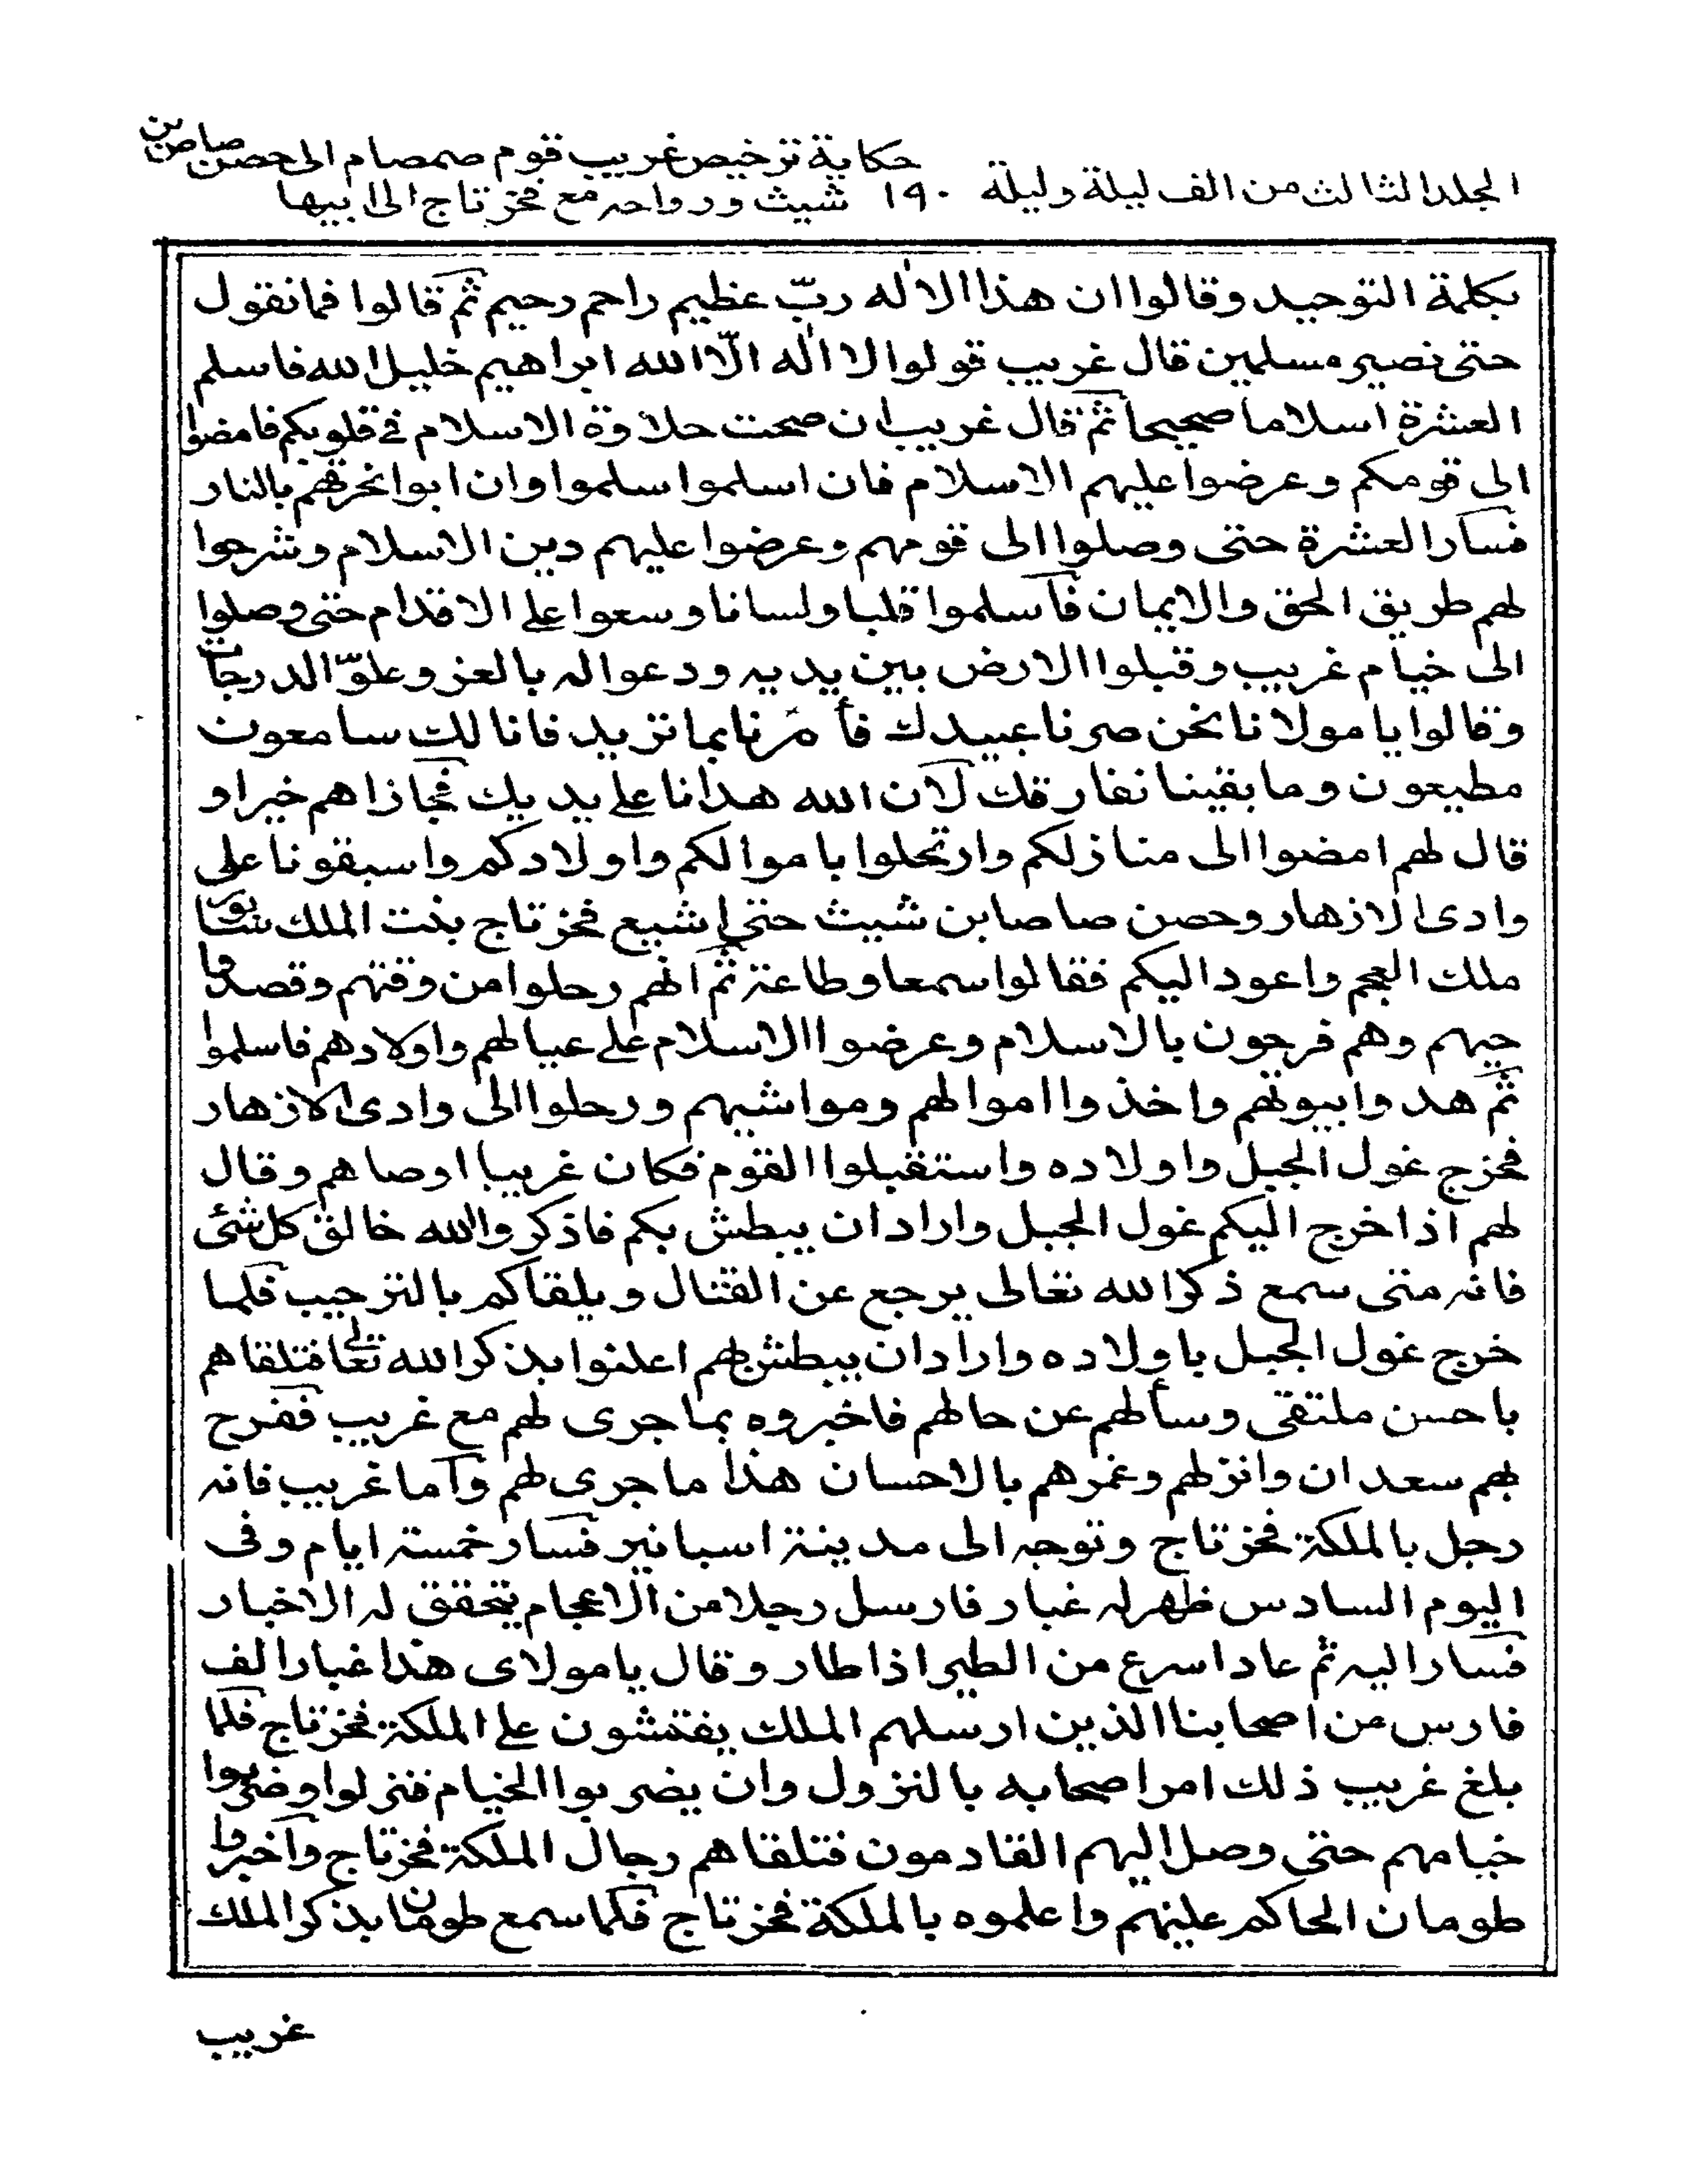 حكاية ترخيص غريب قوم صمصام الى حصن صاصا بن
الجلد الثالث من الف ليلة وليلة ١٩٠ شيث ورواحه مع فخرتاج الى ابيها
بكلمة التوحيد وقالوا ان هذا الاله ربّ عظيم راحم رحيم ثم قالوا فما نقول
حتى نصير مسلمين قال غريب قولوا لا اله الّا الله ابراهيم خليل الله فاسلم
العشرة اسلاما صحيحا ثم قال غريب ان صحت حلاوة الاسلام في قلوبكم فامضوا
الى قومكم وعرضوا عليهم الاسلام فان اسلموا سلموا وان ابوا نحرقهم بالنار
فسار العشرة حتى وصلوا الى قومهم وعرضوا عليهم دين الاسلام وشرحوا
لهم طريق الحق والايمان فاسلموا قلبا ولسانا وسعوا على الاقدام حتى وصلوا
الى خيام غريب وقبلوا الارض بين يديه ودعوا له بالعز وعلوّ الدرجات
وقالوا يا مولانا نحن صرنا عبيدك فأمرنا بما تريد فانا لك سامعون
مطيعون وما بقينا نفارقك لان الله هدانا على يديك فجازاهم خيرا و
قال لهم امضوا الى منازلكم وارتحلوا باموالكم واولادكم واسبقونا على
وادى الازهار وحصن صاصا بن شيث حتى اشيع فخرتاج بنت الملك سابور
ملك العجم واعود اليكم فقالوا سمعا وطاعة ثم انهم رحلوا من وقتهم وقصدوا
حيهم وهم فرحون بالاسلام وعرضوا الاسلام على عيالهم واولادهم فاسلموا
ثم هدوا بيوتهم واخذوا اموالهم ومواشيهم ورحلوا الى وادى الازهار
فخرج غول الجبل واولاده واستقبلوا القوم فكان غريبا اوصاهم وقال
لهم اذا خرج اليكم غول الجبل واراد ان يبطش بكم فاذكروا الله خالق كل شئ
فانه متى سمع ذكر الله تعالى يرجع عن القتال ويلقاكم بالترحيب فلما
خرج غول الجبل باولاده واراد ان يبطش بهم اعلنوا بذكر الله تعالى فتلقاهم
باحسن ملتقى وسألهم عن حالهم فاخبروه بما جرى لهم مع غريب ففرح
بهم سعدان وانزلهم وغمرهم بالاحسان هذا ما جرى لهم واما غريب فانه
رحل بالملكة فخرتاج وتوجه الى مدينة اسبانير فسار خمسة ايام وفى
اليوم السادس ظهر له غبار فارسل رجلا من الاعجام يتحقق له الاخبار
فسار اليه ثم عاد اسرع من الطير اذا طار وقال يا مولاى هذا غبار الف
فارس من اصحابنا الذين ارسلهم الملك يفتشون على الملكة فخرتاج فلما
بلغ غريب ذلك امر اصحابه بالنزول وان يضربوا الخيام فنزلوا وضربوا
خيامهم حتى وصل اليهم القادمون فتلقاهم رجال الملكة فخرتاج واخبروا
طومان الحاكم عليهم واعلموه بالملكة فخرتاج فلما سمع طومان بذكر الملك
غريب